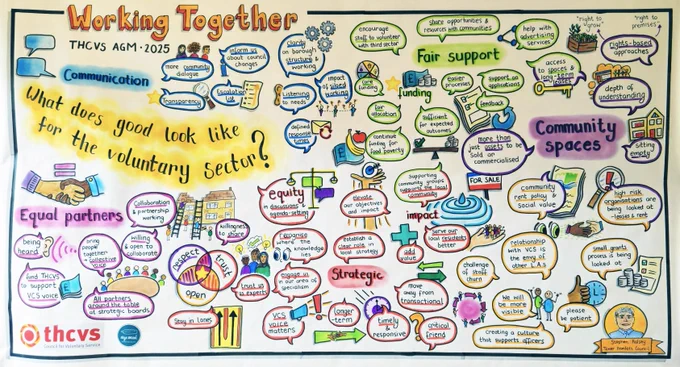 Working Together
THCVS AGM • 2025
Communication
more community
dialogue
inform us
about council
changes
clarity
on borough
structure &
working
Transparency
Escalation
list
Listening to
needs
impact
of siloed
working
defined
personal
What does good look like
for the voluntary sector?
encourage
staff to volunteer
with third sector
share opportunities &
resources with communities
help with
advertising
services
Fair support
core
funding
funding
easier
processes
support on
applications
feedback
fair
allocation
sufficient
for expected
outcomes
continue
funding for
food poverty
"right to
grow"
"right to
premises"
rights-based
approaches
access
to spaces &
long-term
depth of
understanding
Community
spaces
sitting
empty
more than
just assets to be
sold or
commercialised
FOR SALE
community
rent policy &
social value
high risk
organisations
are being
looked at
leases & rent
Equal partners
Collaboration
& partnership
working
willingness
to share
being
heard
bring
people
together
- collective
voice
willing
& open to
collaborate
fund THCVS
to support
VCS voice
All partners
around the table
at strategic boards
respect
trust
open
trust us
as experts
Stay in lanes
equity
in discussions &
agenda-setting
elevate
our objectives
and impact
supporting
community groups
supports the local
community
impact
recognise
where the
knowledge
lies
establish a
clear role in
local strategy
add
value
serve our
local residents
better
engage us
in our areas of
specialism
Strategic
move
away from
transactional
VCS
voice
matters
longer-
term
timely
&
responsive
critical
friend
challenge
of staff
churn
relationship
with VCS is
the envy of
other L.A.s
small grants
process is being
looked at
We will
be more
visible
please
be patient
creating a culture
that supports officers
Stephen Halsey
Tower Hamlets Council
thcvs
Council for Voluntary Service